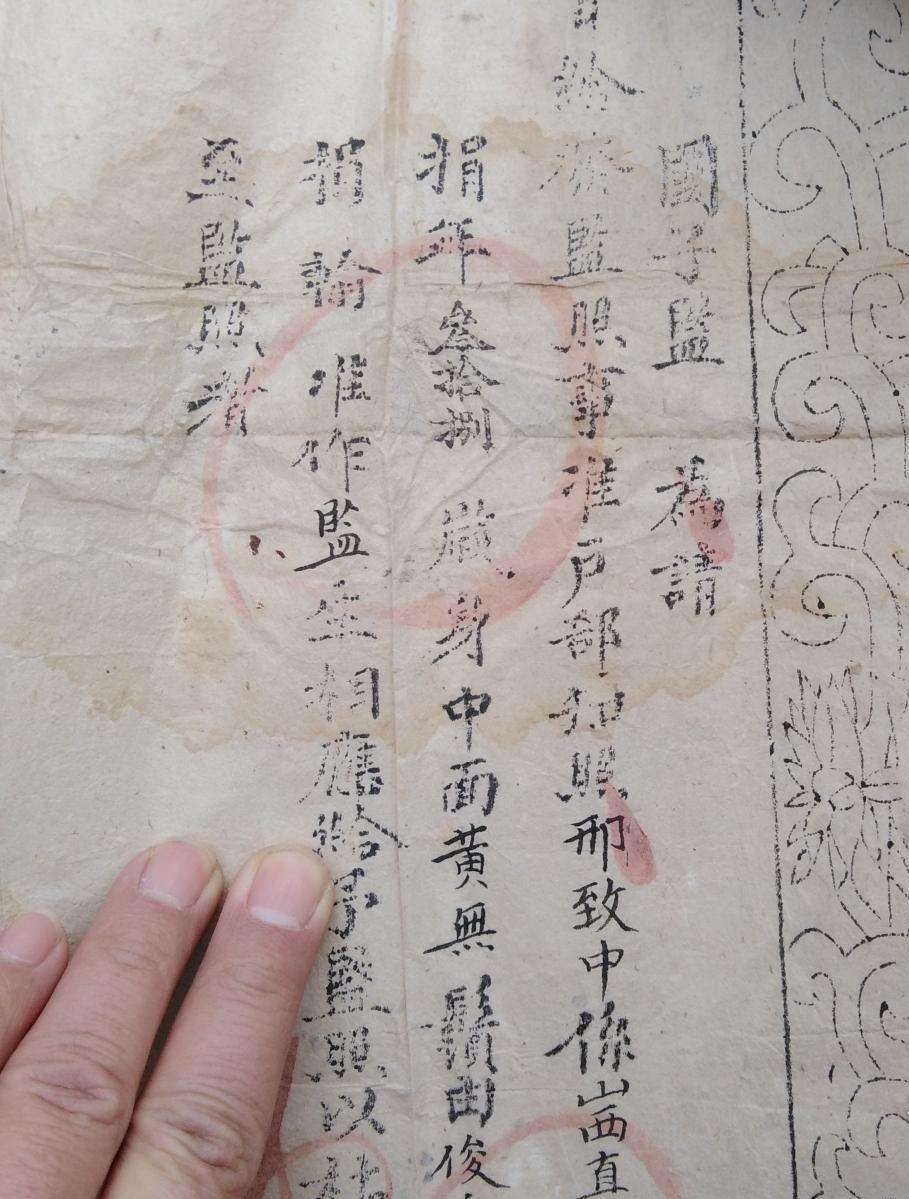 國子監 為請
給發監照事准戶部知照邢致中係山西直
捐年叁拾捌歲身中面黃無鬚由俊
捐輸准作監生相應給予監照以
至監照者